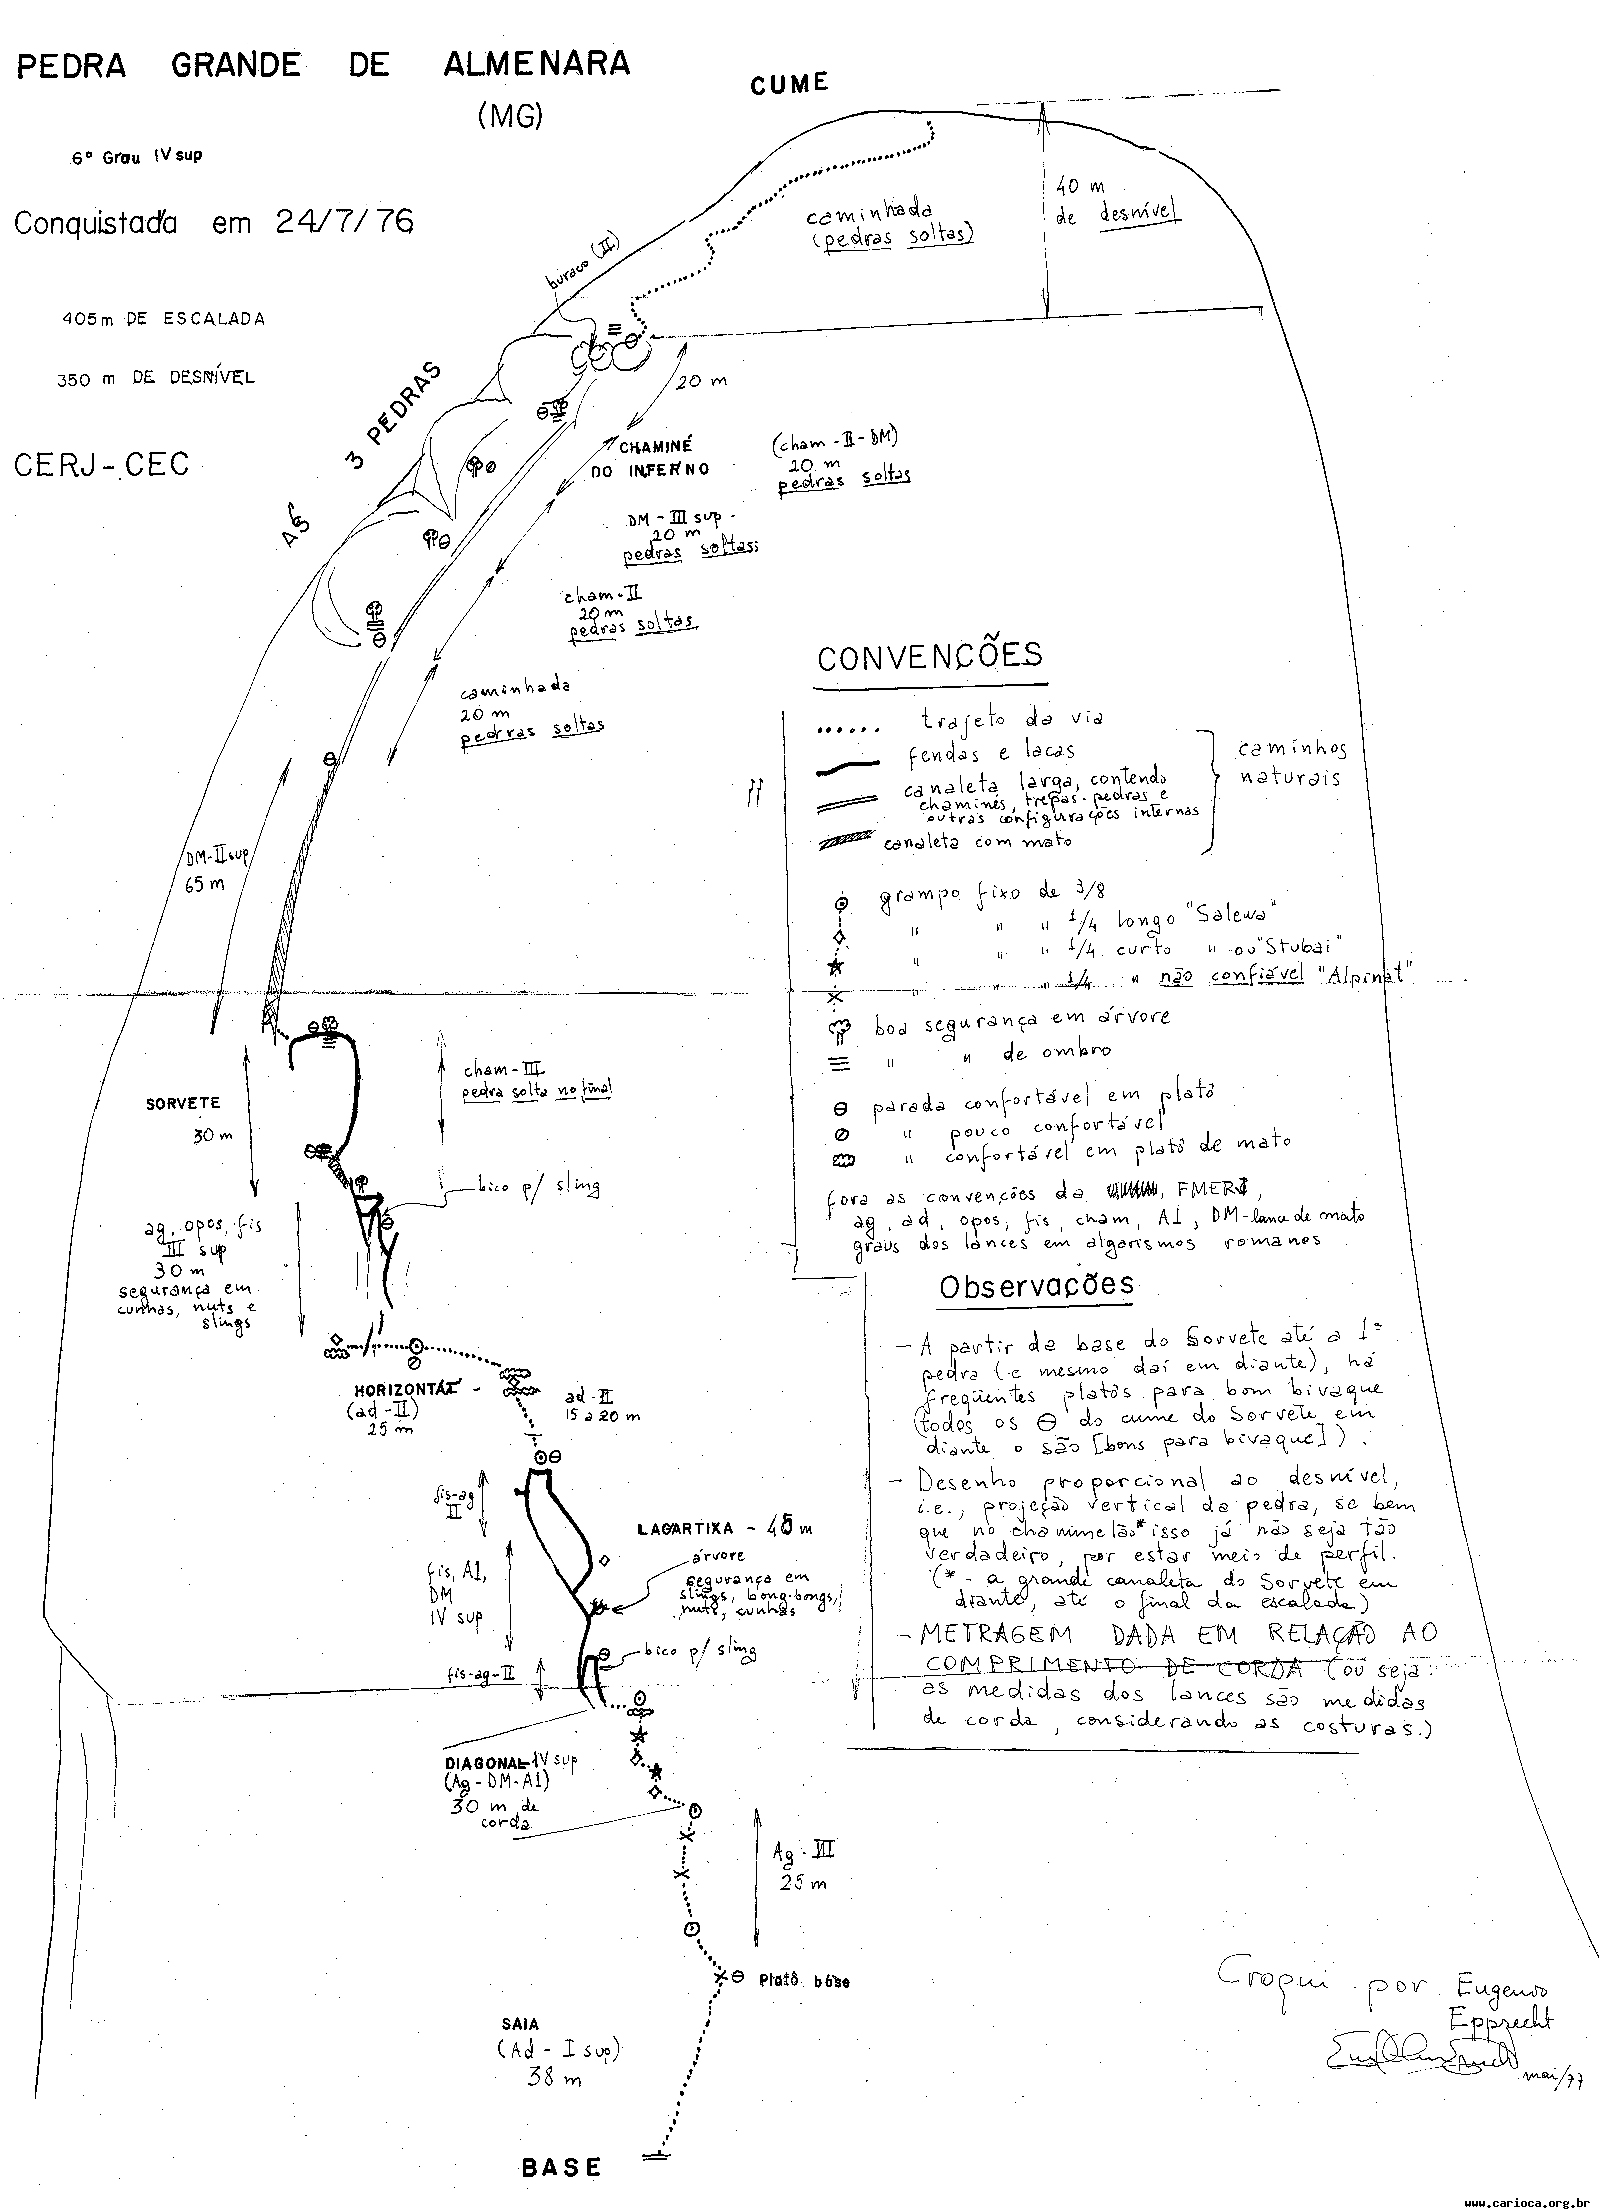 PEDRA GRANDE DE ALMENARA
(MG)
CUME
6º Grau IV sup
Conquistada em 24/7/76
405m DE ESCALADA
350 m DE DESNÍVEL
CERJ-CEC
40 m
de desnível
caminhada
(pedras soltas)
buraco (II)
20 m
AS 3 PEDRAS
CHAMINÉ
DO INFERNO
(cham-II-DM)
20 m
pedras soltas
DM-III sup
20 m
pedras soltas
cham-II
20 m
pedras soltas
caminhada
20 m
pedras soltas
DM-II sup
65 m
CONVENCÕES
trajeto da via
fendas e lacas
canaleta larga, contendo
chaminés, trepa-pedras e
outras configurações internas
canaleta com mato
caminhos
naturais
grampo fixo de 3/8
" " " 1/4 longo "Salewa"
" " " 1/4 curto " ou "Stubai"
" " " 1/4 " não confiável "Alpinat"
boa segurança em árvore
" " de ombro
parada confortável em platô
" pouco confortável
" confortável em platô de mato
fora as convenções da FMERJ,
ag, ad, opos, fis, cham, A1, DM-lance de mato
graus dos lances em algarismos romanos
SORVETE
30 m
cham-III
pedra solta no final
bico p/ sling
ag, opos, fis
III sup
30 m
segurança em
cunhas, nuts e
slings
HORIZONTAL
(ad-II)
25 m
ad-II
15 a 20 m
fis-ag
II
LAGARTIXA - 45 m
árvore
segurança em
slings, bong-bongs,
nuts, cunhas
fis, A1,
DM
IV sup
bico p/ sling
fis-ag-II
DIAGONAL-IV sup
(Ag-DM-A1)
30 m de
corda
Ag-III
25 m
Platô base
SAIA
(Ad - I sup)
38 m
BASE
Observações
- A partir da base do Sorvete até a 1ª
pedra (e mesmo daí em diante), há
freqüentes platôs para bom bivaque
(todos os ⊖ do cume do Sorvete em
diante o são [bons para bivaque]).
- Desenho proporcional ao desnível,
i.e., projeção vertical da pedra, se bem
que no chaminelão* isso já não seja tão
verdadeiro, por estar meio de perfil.
(* - a grande canaleta do Sorvete em
diante, até o final da escalada)
- METRAGEM DADA EM RELAÇÃO AO
COMPRIMENTO DE CORDA (ou seja:
as medidas dos lances são medidas
de corda, considerando as costuras.)
Croqui por Eugenio
Epprecht
mai/77
www.carioca.org.br